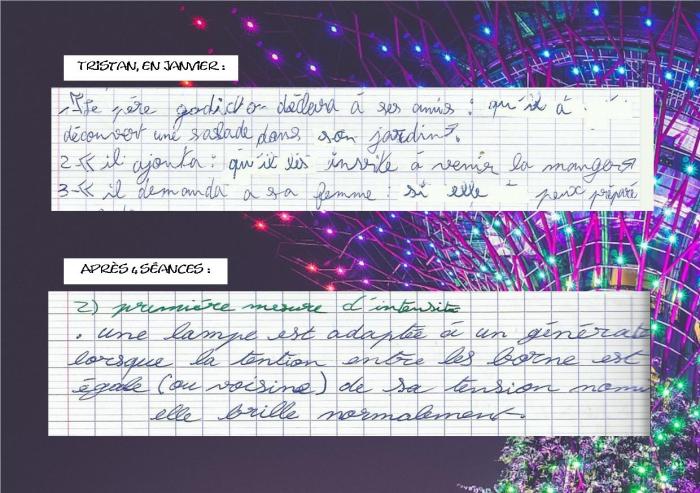 TRISTAN, EN JANVIER :
1 "Le père godicho déclara à ses amis : qu'il à
découvert une saslade dans son jardin".
2 « il ajouta : qu'il lés invité à venir la manger »
3 « il demanda a sa femme : si elle peux préparé
APRÈS 4 SÉANCES :
2) première mesure d'intensité
. une lampe est adaptée à un générat
lorsque la tention entre les borne est
égale (ou voisine) de sa tension nomi
elle brille normalement.